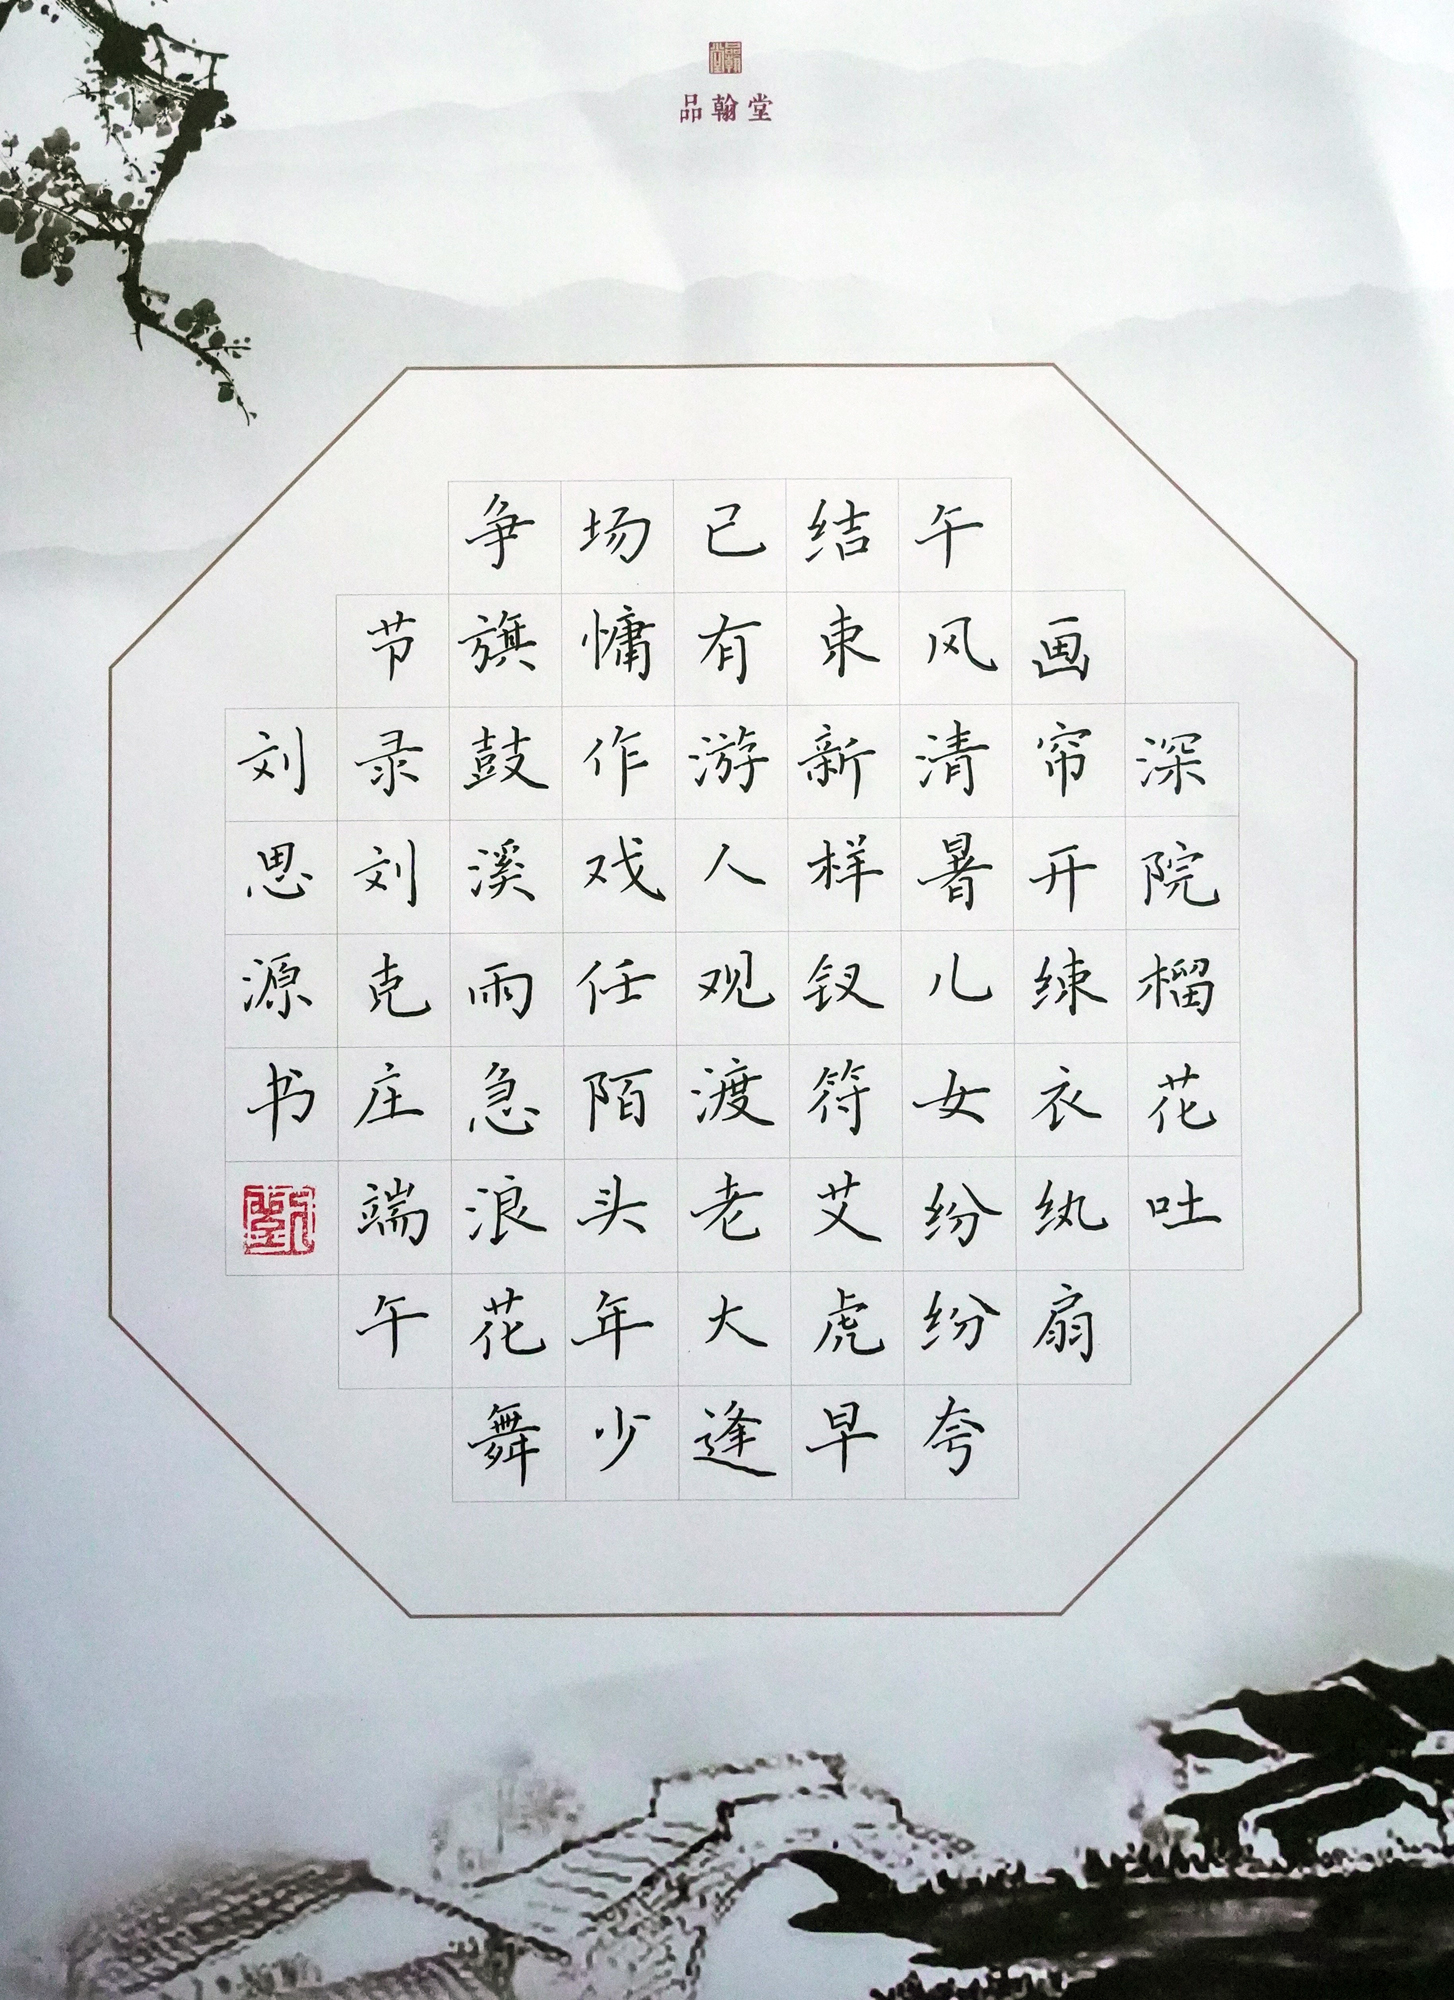 品翰堂
深院榴花吐
画帘开綀衣纨扇
午风清暑儿女纷纷夸
结東新样钗符艾虎早
已有游人观渡老大逢
场慵作戏任陌头年少
争旗鼓溪雨急浪花舞
节录刘克庄端午
刘思源书